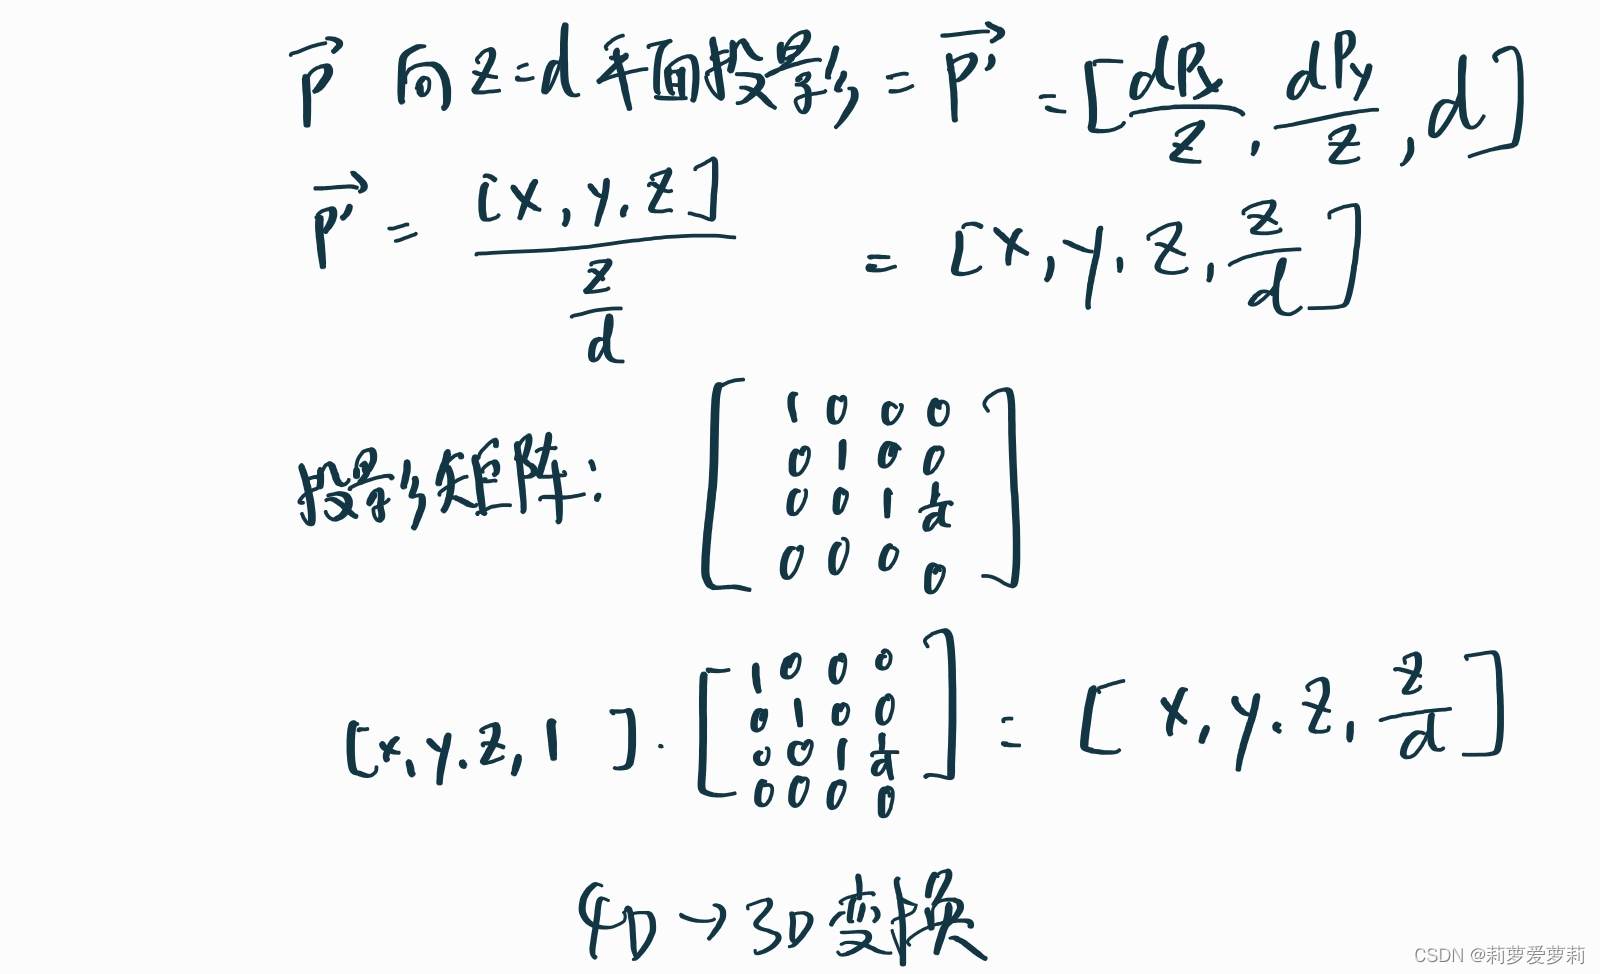 p⃗ 向 z=d 平面投影 = p⃗' = [dPx/z, dPy/z, d]
p⃗' = [x, y, z] / (z/d) = [x, y, z, z/d]
投影矩阵:
1 0 0 0
0 1 0 0
0 0 1 1/d
0 0 0 0
[x, y, z, 1] · [1 0 0 0
0 1 0 0
0 0 1 1/d
0 0 0 0] = [x, y, z, z/d]
4D → 3D 变换
CSDN @莉萝爱萝莉